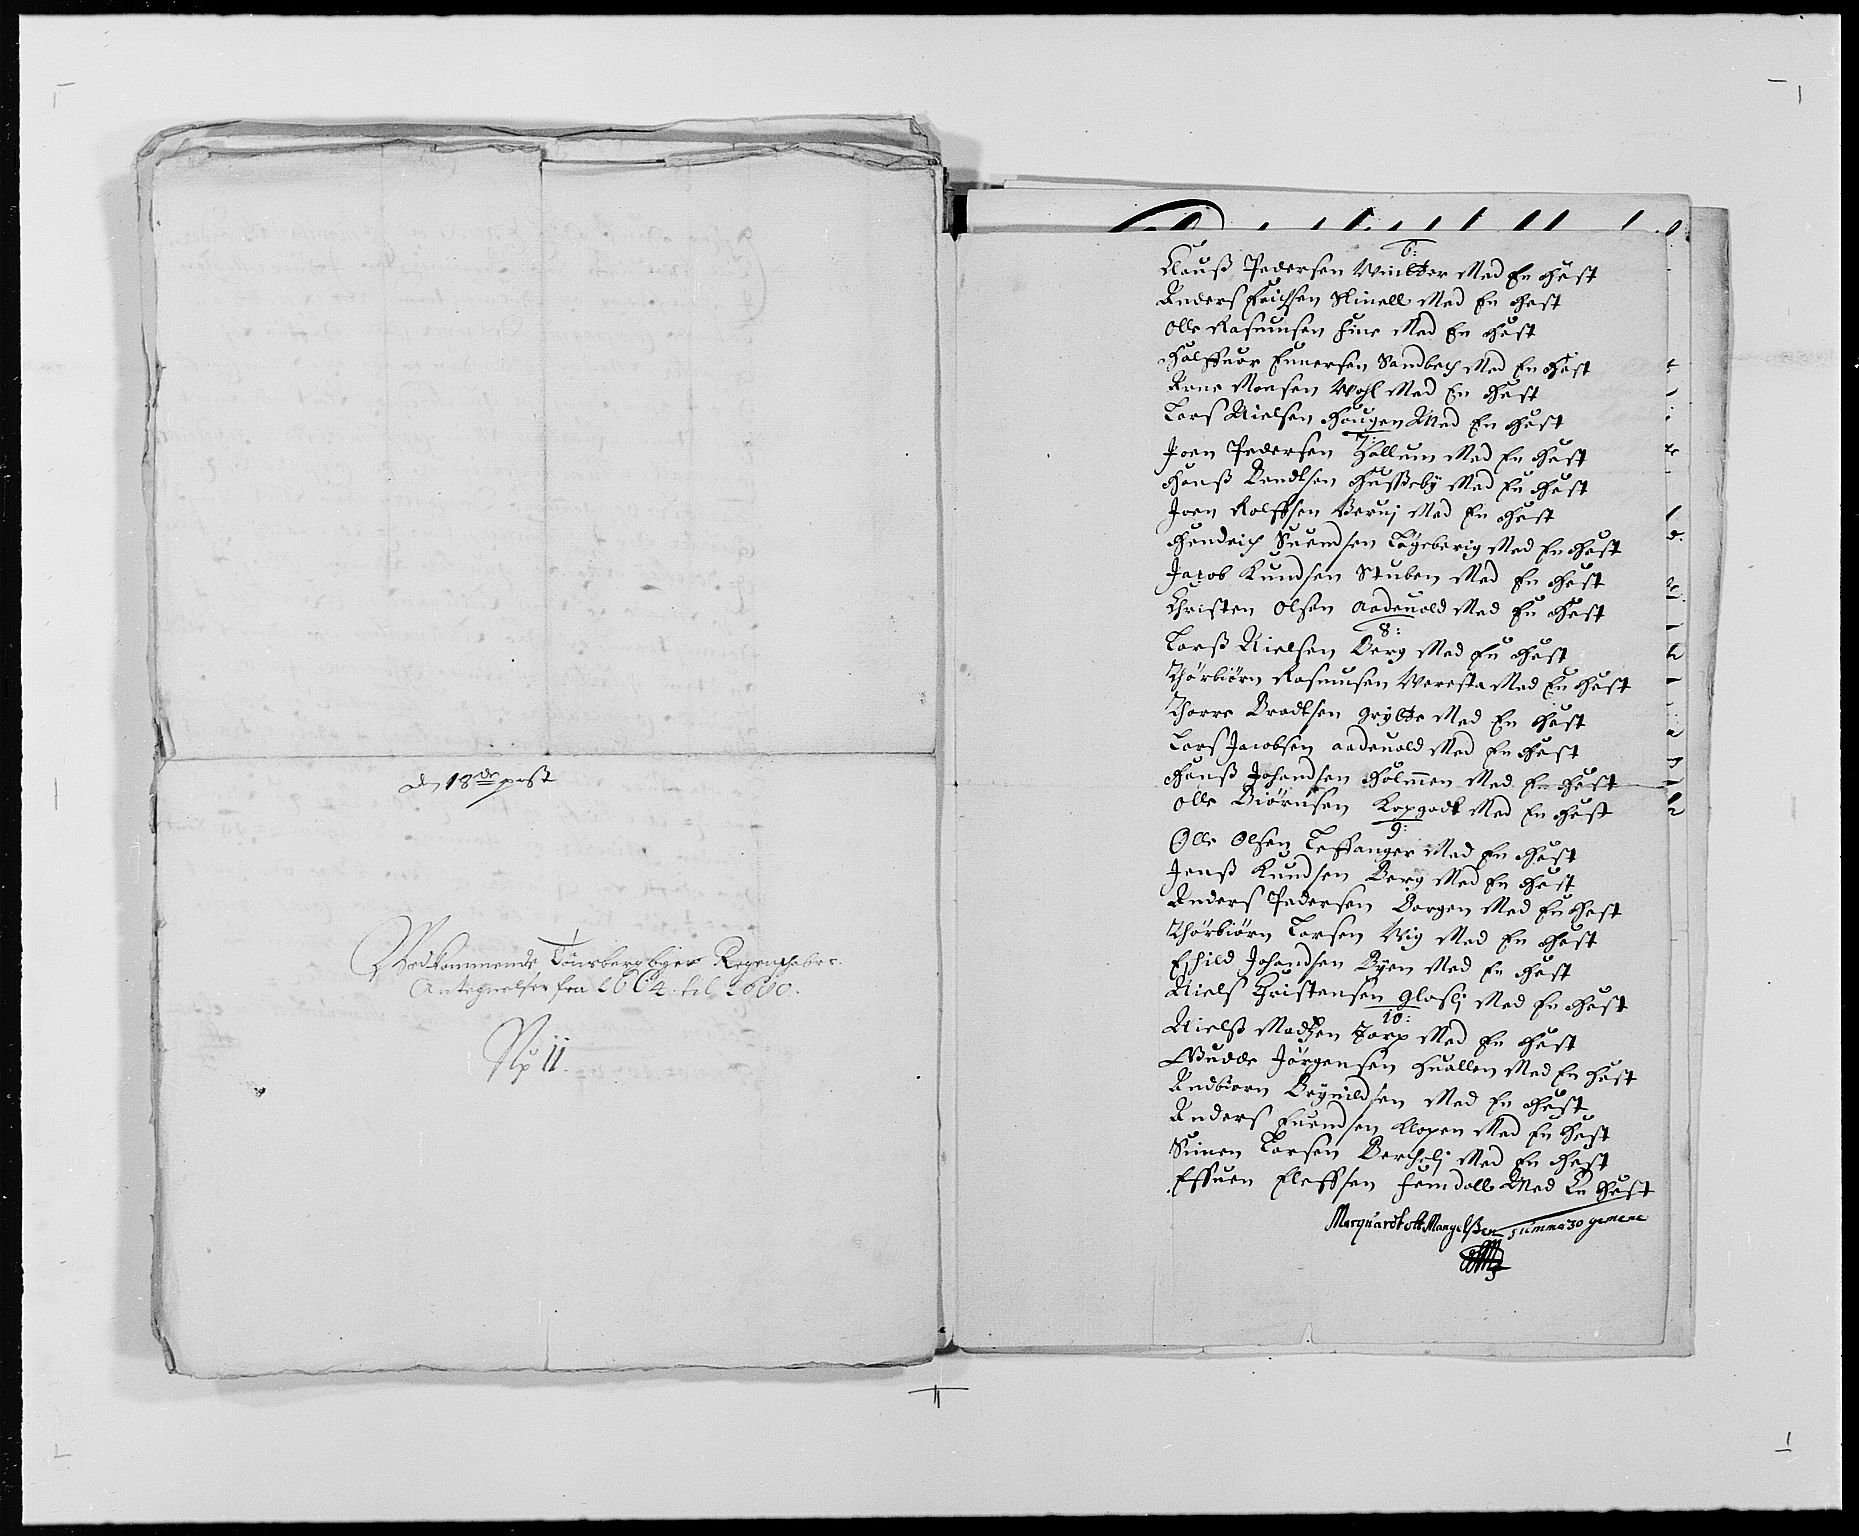 d 18de post
Vedkommende Tønsberg byes Regenschabers
Antegnelser fra 1664 til 1680.
No 11.
6:
Clauß Pedersen Winltter Med En Hest
Anders Erichsen Slinell Med En Hest
Olle Rasmusen fine Med En Hest
Halffuor Eunersen Sandbech Med En Hest
Arne Monsen Wohl Med En Hest
Lars Nielsen Hougen Med En Hest
7:
Joen Pedersen Hallum Med En Hest
Hanß Bendtsen Husseby Med En Hest
Joen Rolffsen Med En Hest
Hendrich Suendsen Togeberig Med En Hest
Jacob Knudsen Stuben Med En Hest
Christen Olsen aadeuold Med En Hest
8:
Larß Nielsen Berg Med En Hest
Thorbiørn Rasmusen Weresta Med En Hest
Thorre Brodtsen Grÿtte Med En Hest
Lars Jacobsen aadeuold Med En Hest
Hanß Johandsen Holmen Med En Hest
Olle Biørnsen Kopgodt Med En Hest
9:
Olle Olsen Teffanger Med En Hest
Jenß Knudsen Berg Med En Hest
Anders Pedersen Borgen Med En Hest
Thorbiørn Larsen Wig Med En Hest
Eshild Johandsen Byen Med En Hest
Niels Christensen Gloslj Med En Hest
10:
Nielß Madtzen Torp Med En Hest
Gudde Jørgensen Huallen Med En Hest
Andbiørn Brynildsen Med En Hest
Anders Euendsen Klopen Med En Hest
Simen Larsen Berchelj Med En Hest
Effuen Eleffsen Femdall Med En Hest
Marquardt ott Mangelßen summa 30 gemene